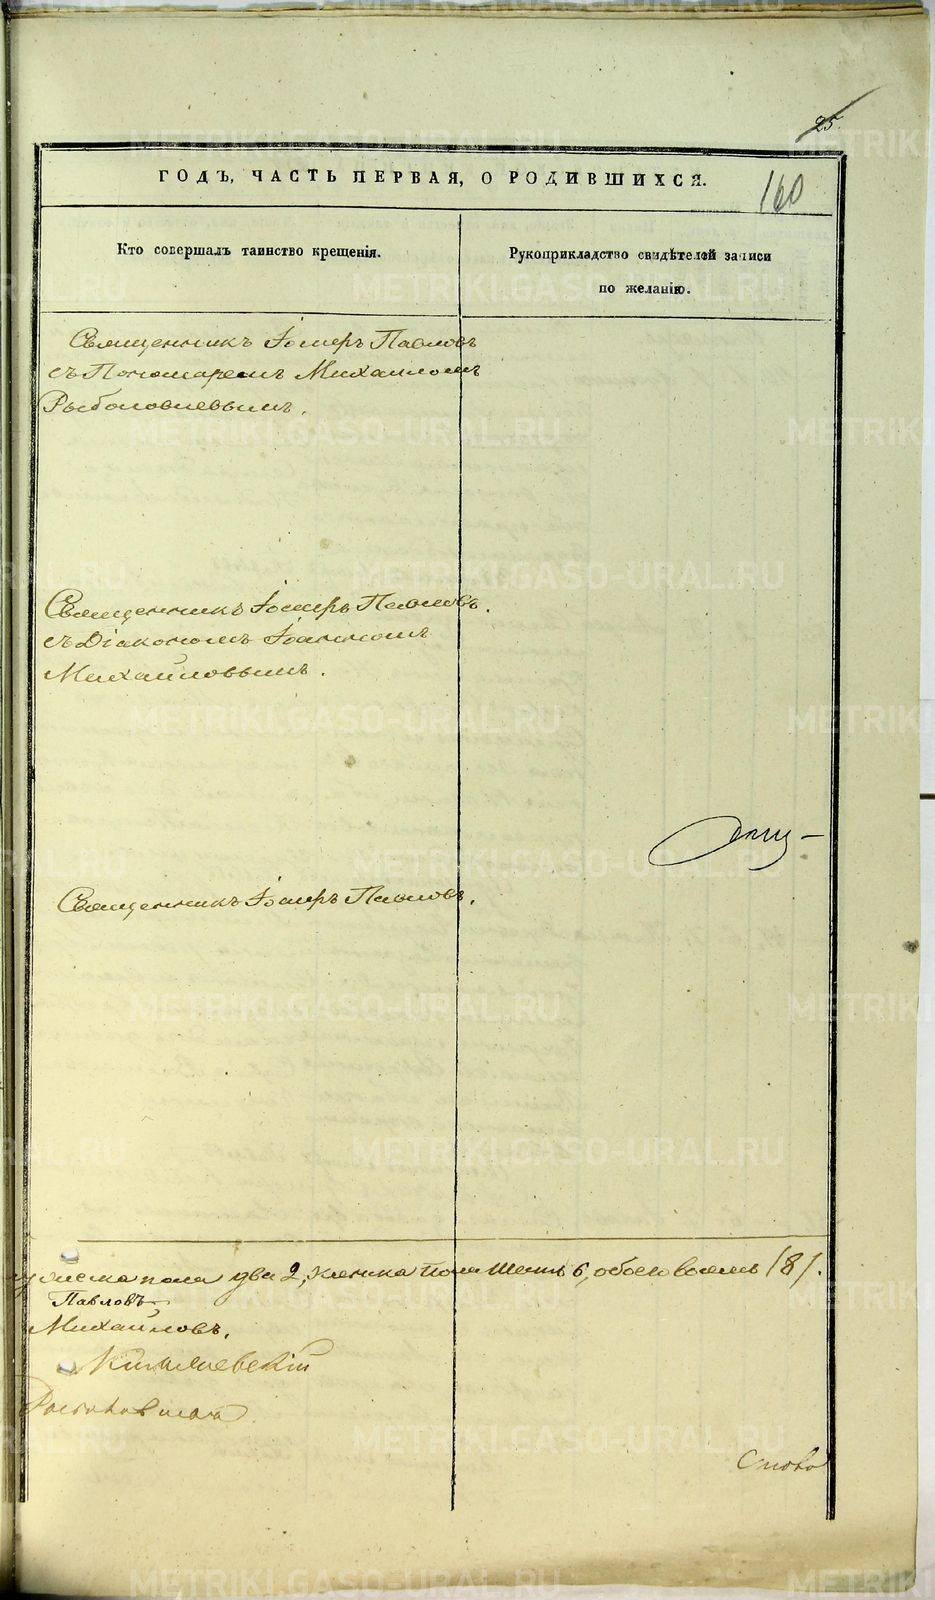 25
ГОДЪ, ЧАСТЬ ПЕРВАЯ, О РОДИВШИХСЯ.
160
Кто совершалъ таинство крещенія.
Рукоприкладство свидѣтелей записи
по желанію.
Священникъ Іоаннъ Павловъ
съ Пономаремъ Михаиломъ
Священникъ Павловъ.
съ Діакономъ Іоанномъ
Михайловымъ.
Священникъ Павловъ.
мужеска пола два 2, женска пола шесть 6, обоего восемь /8/.
Павловъ
Михайловъ.
METRIKI.GASO-URAL.RU